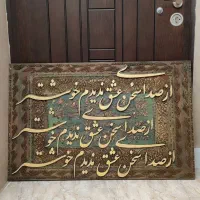 از صدای سخن عشق ندیدم خوشتر
از صدای سخن عشق ندیدم خوشتر
از صدای سخن عشق ندیدم خوشتر